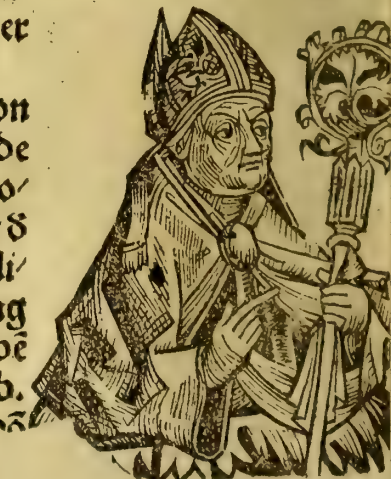 er
on
de
o/
d
li/
ng
pē
b.